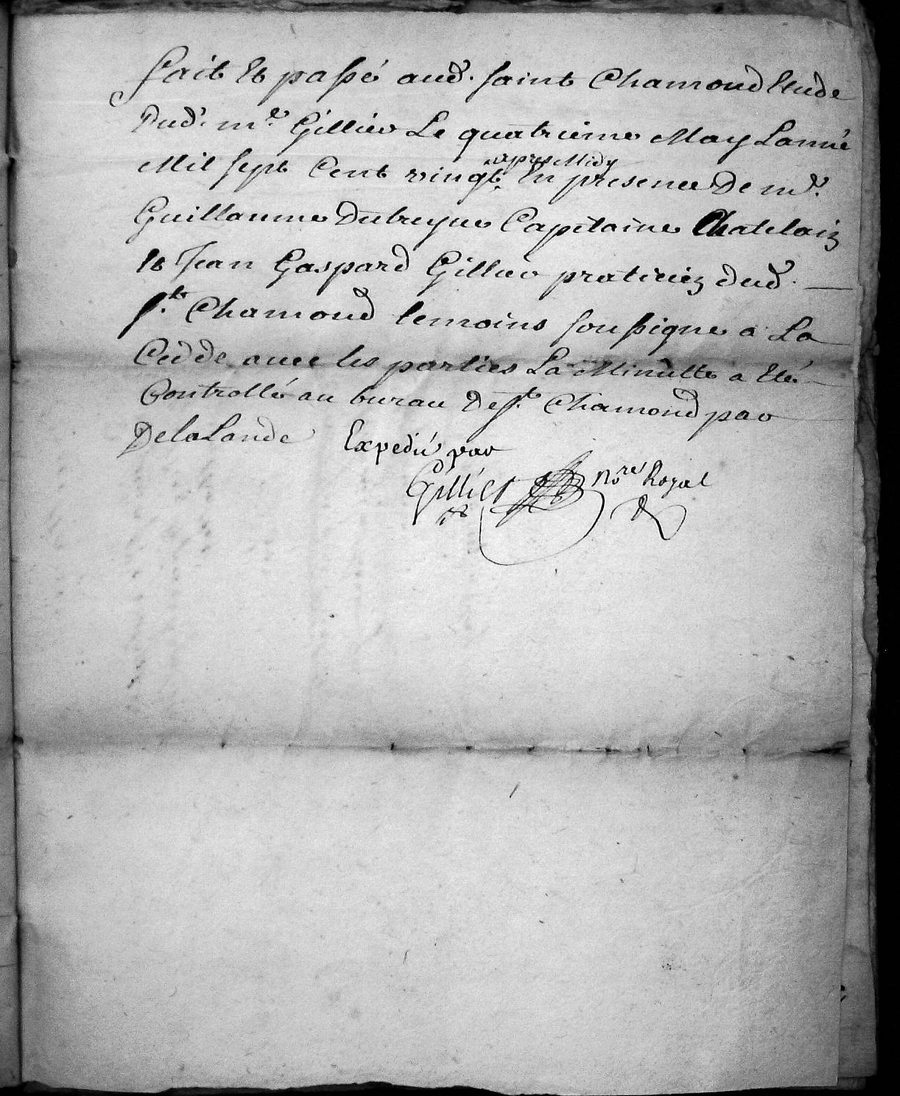 fait et passé aud. saint Chamond Etude
dud. mr. Gillier Le quatrieme May Lanné
apres Midy
Mil sept Cent vingt En presence De mr.
Guillaume Capitaine Chatelain
et Jean Gaspard Gillier praticien dud.
st. Chamond temoins soussigne a La
Cedde avec les parties La Minutte a eté
Controllé au bureau De st. Chamond par
DelaLande Expedié par
Gillier Nore Royal